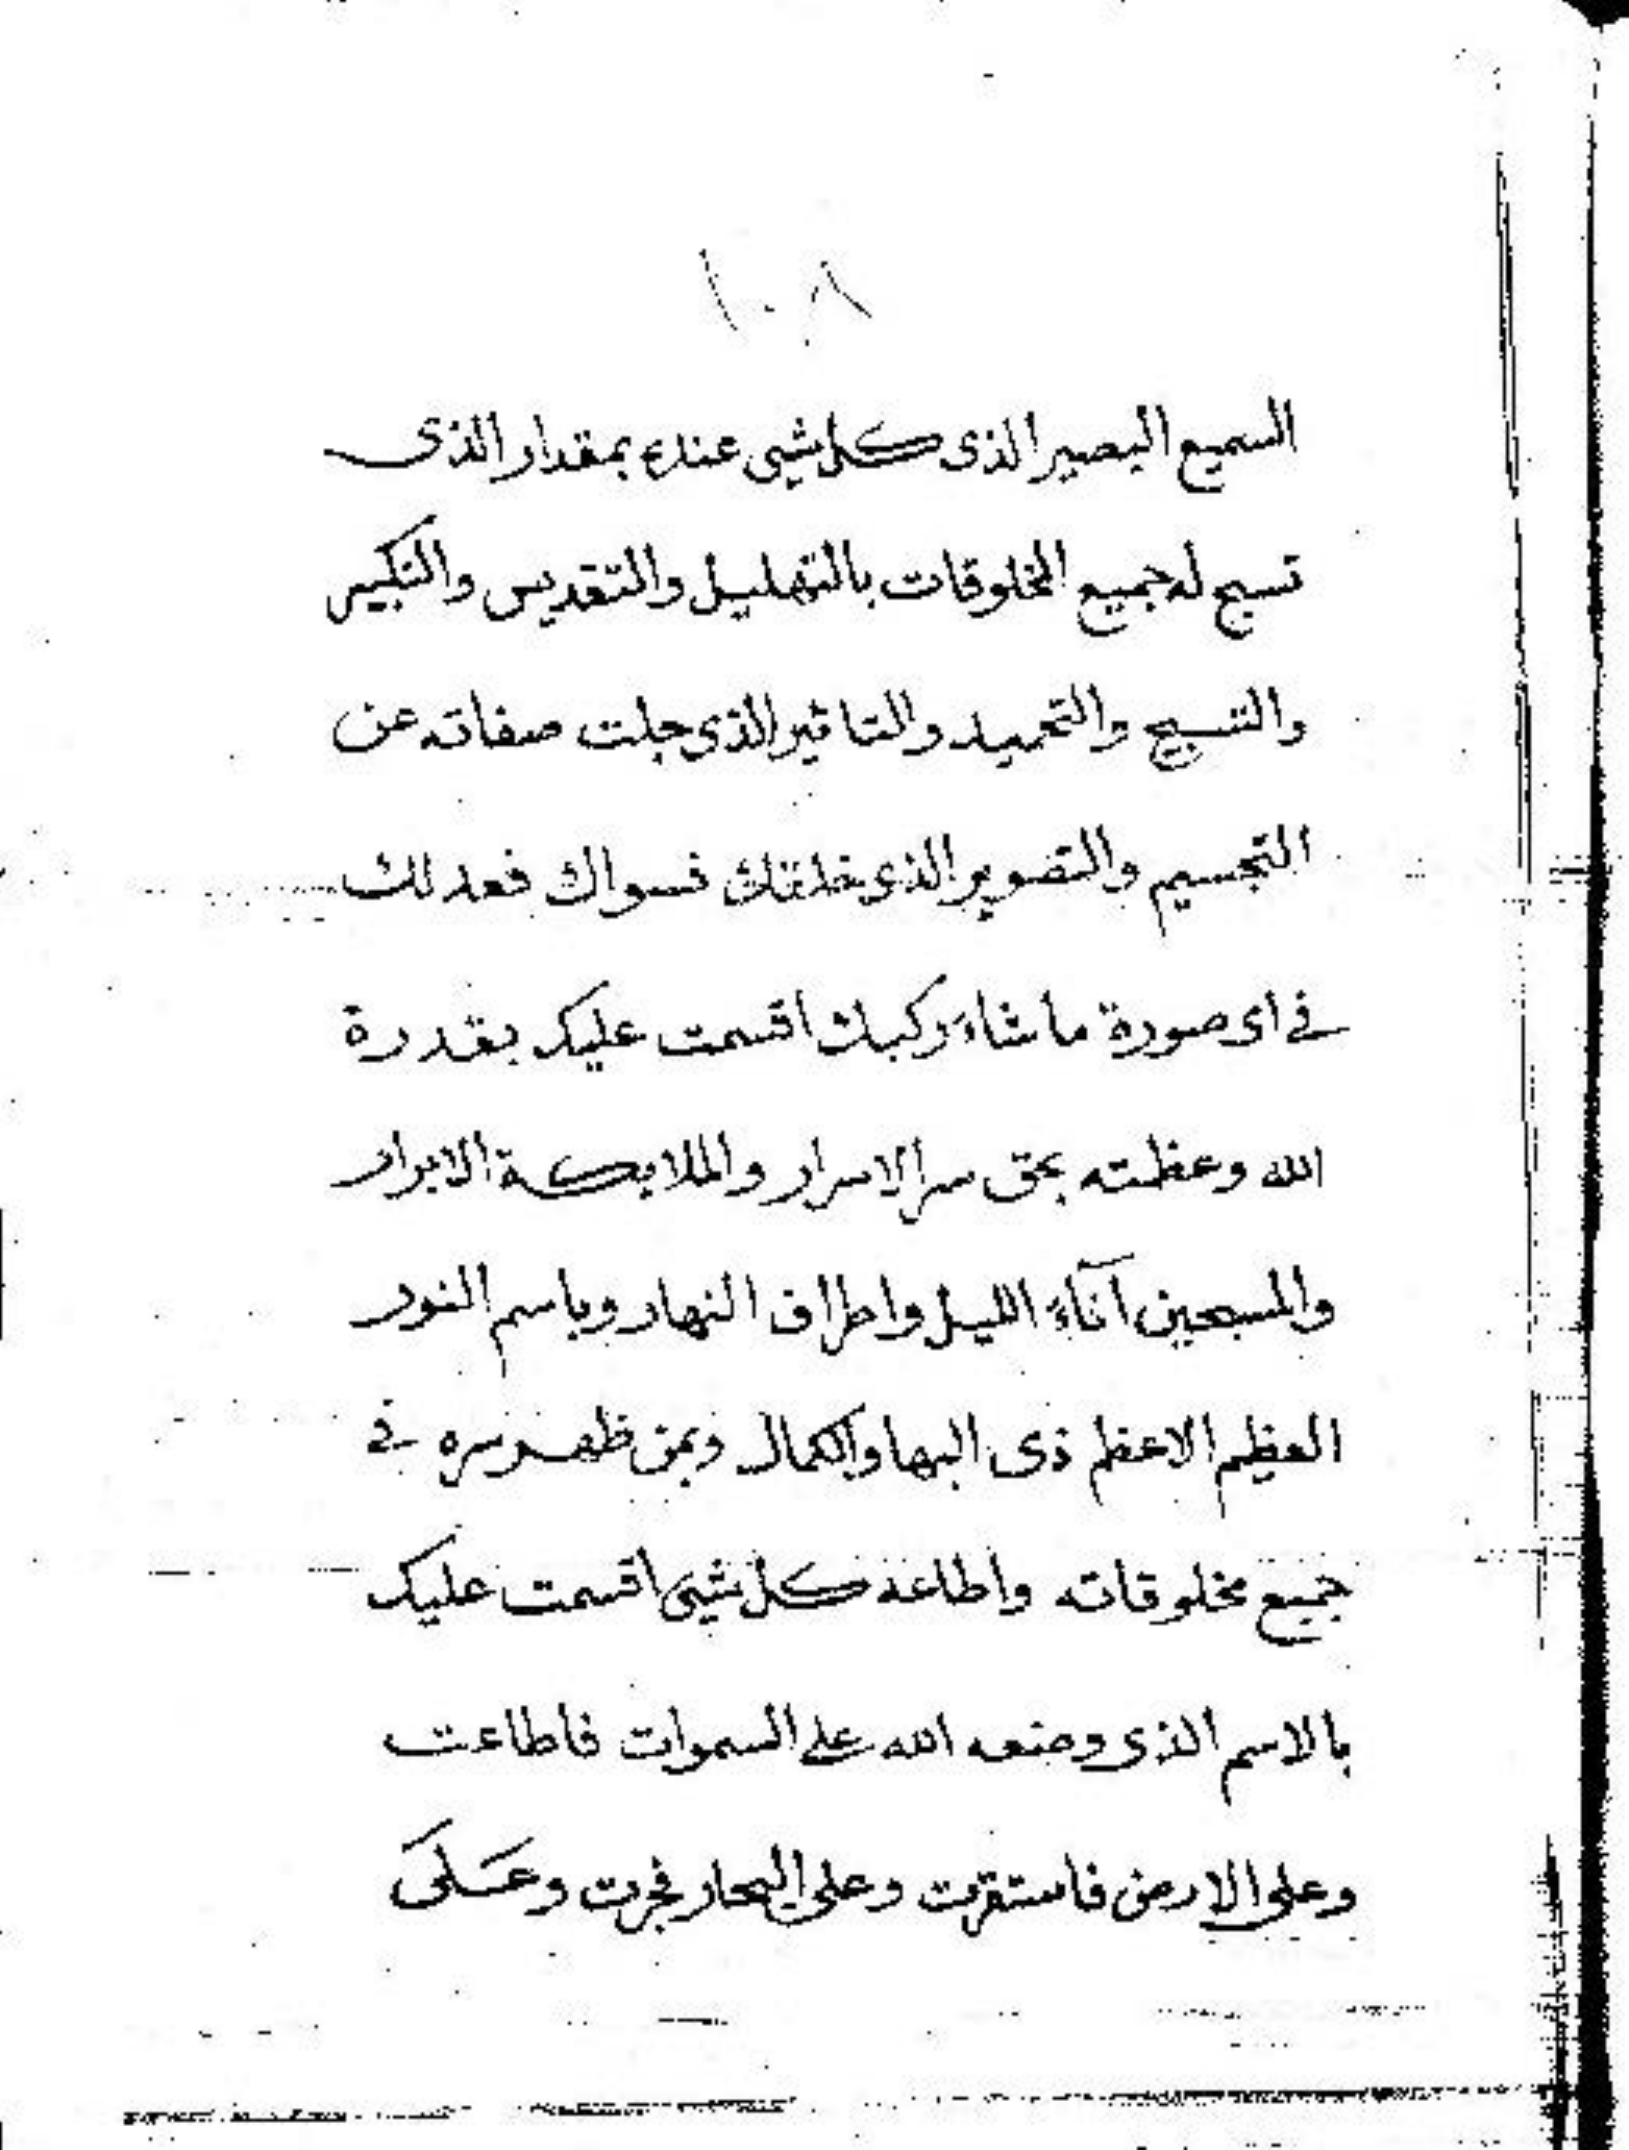 ١٠٨
السميع البصير الذى كل شيى عنده بمقدار الذى
تسبح له جميع المخلوقات بالتهليل والتقديس والتكبير
والتسبيح والتحميد والتاثير الذى جلت صفاته عن
التجسيم والتصوير الذى خلقك فسواك فعدلك
فى اى صورة ما شاء ركبك اقسمت عليك بقدرة
الله وعظمته بحق سر الاسرار والملايكة الابرار
والمسبحين آناء الليل واطراف النهار وباسم النور
العظيم الاعظم ذى البها والكمال وبمن ظهر سره فى
جميع مخلوقاته واطاعه كل شيى اقسمت عليك
بالاسم الذى وضعه الله على السموات فاطاعت
وعلى الارض فاستقرت وعلى البحار فجرت وعلى